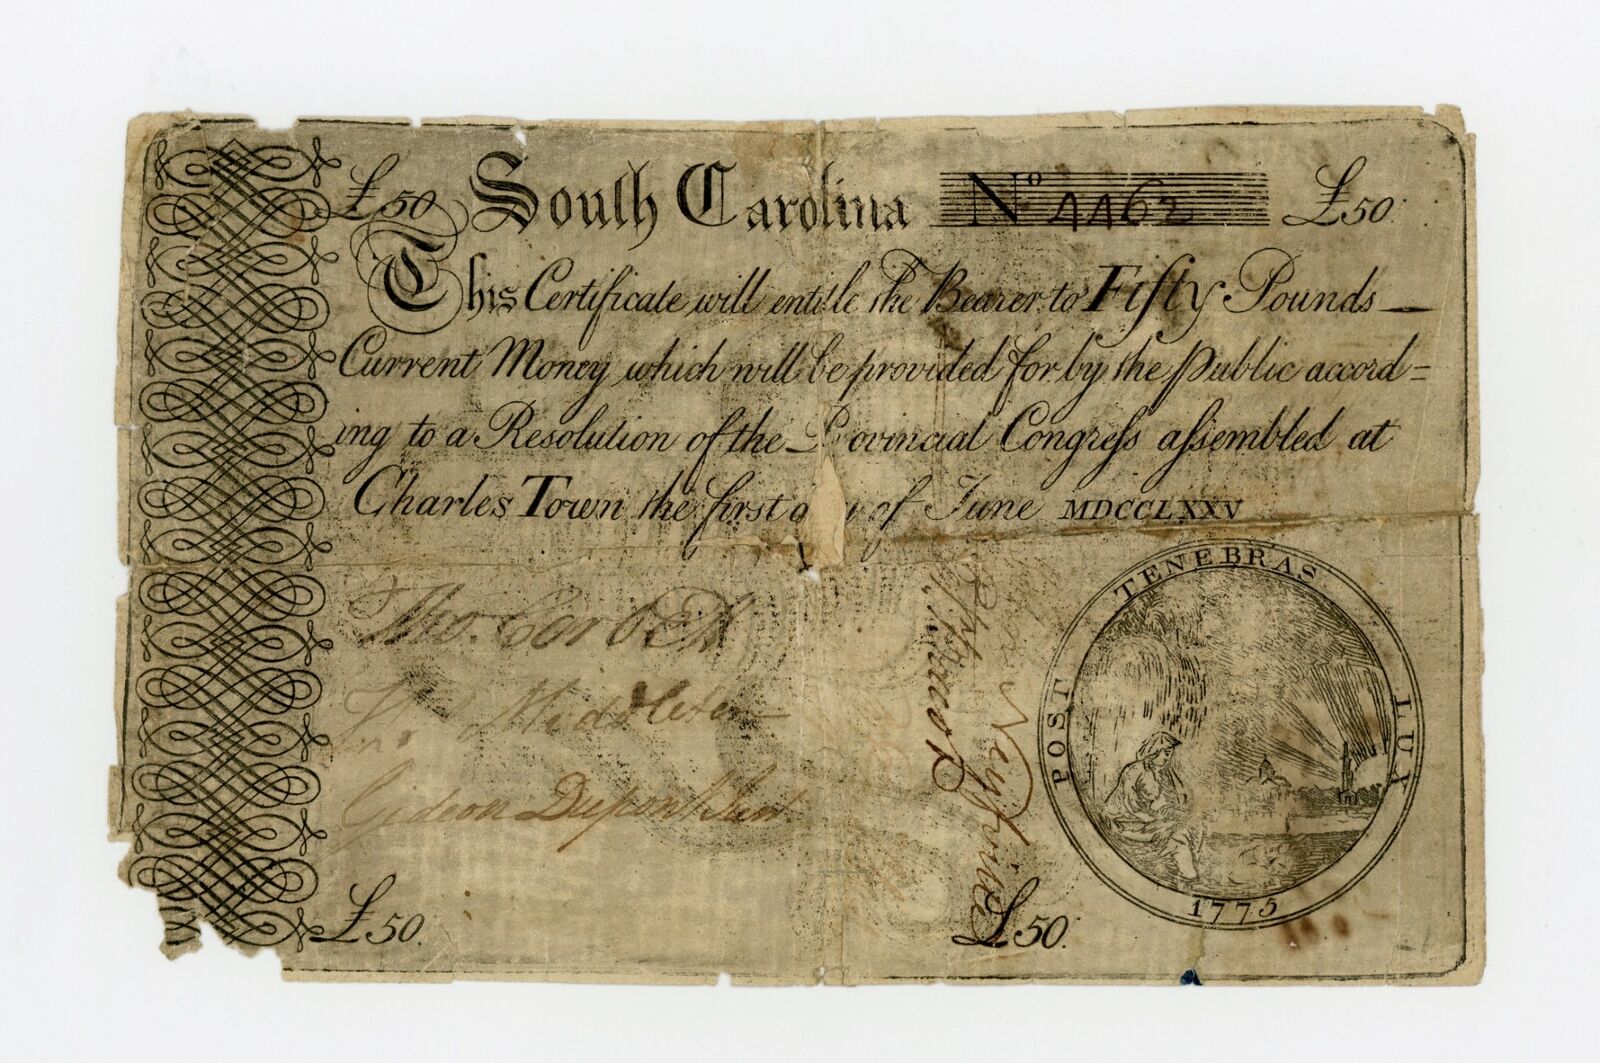 £50 South Carolina No. 4462 £50.
This Certificate will entitle the Bearer to Fifty Pounds
Current Money which will be provided for by the Public accord=
ing to a Resolution of the Provincial Congress assembled at
Charles Town the first day of June MDCCLXXV
Tho. Corbett
Middleton
Gideon Dupont Junr.
£50.
£50.
POST TENEBRAS LUX
1775